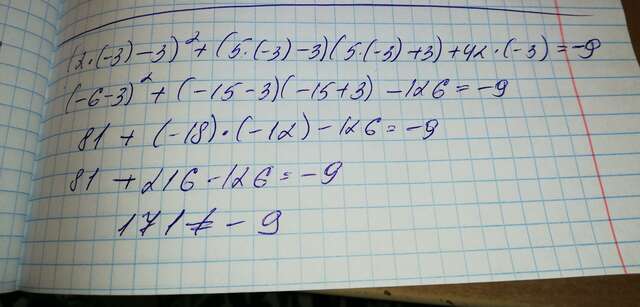 (2·(-3)-3)²+(5·(-3)-3)(5·(-3)+3)+42·(-3)=-9
(-6-3)²+(-15-3)(-15+3)-126=-9
81+(-18)·(-12)-126=-9
81+216-126=-9
171≠-9